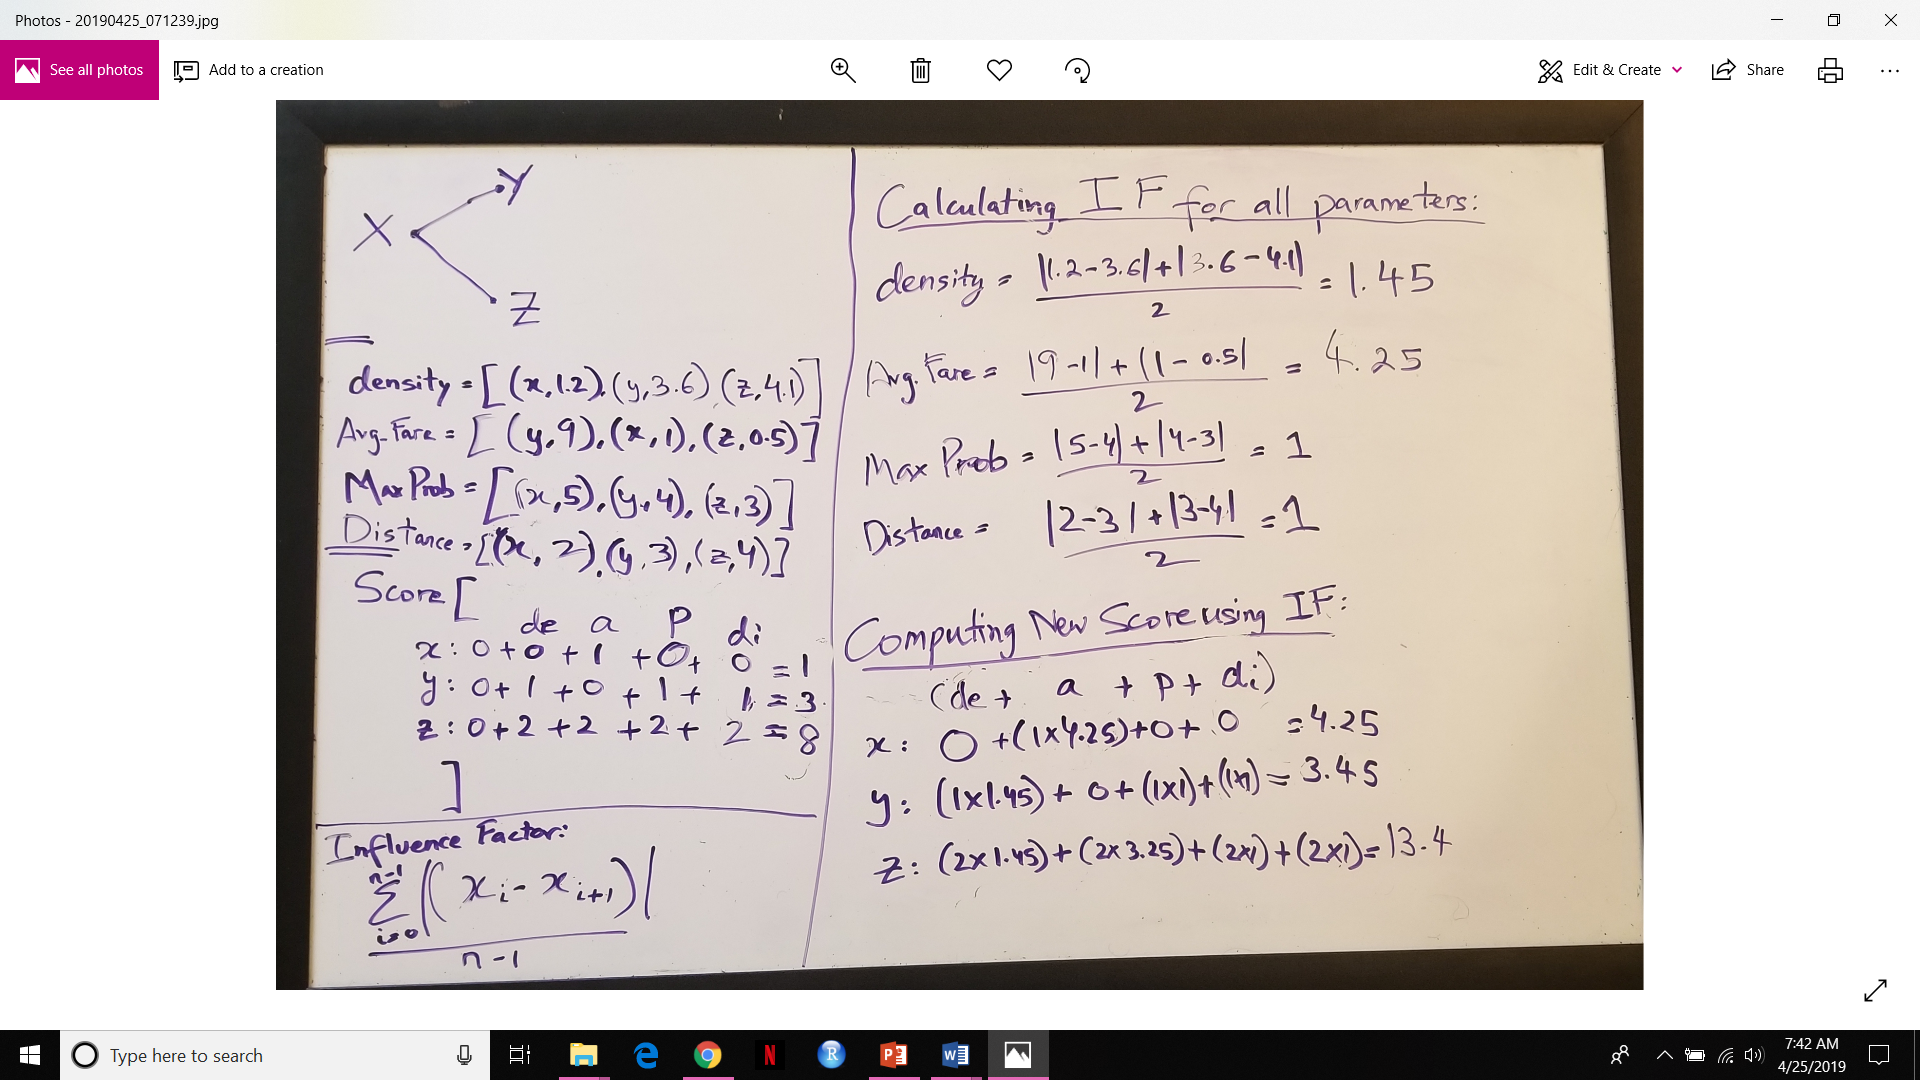 Photos - 20190425_071239.jpg
See all photos
Add to a creation
Edit & Create
Share
X
Y
Z
density = [(x,1.2), (y,3.6), (z,4.1)]
Avg-Fare = [(y,9),(x,1),(z,0.5)]
Max Prob = [(x,5),(y,4),(z,3)]
Distance = [(x,2),(y,3),(z,4)]
Score [
de a P di
x: 0+0+1+0+0=1
y: 0+1+0+1+1=3
z: 0+2+2+2+2=8
]
Influence Factor:
n-1
Σ |(xᵢ - xᵢ₊₁)|
i=0
n-1
Calculating IF for all parameters:
density = |1.2-3.6|+|3.6-4.1| / 2 = 1.45
Avg. Fare = |9-1|+|1-0.5| / 2 = 4.25
Max Prob = |5-4|+|4-3| / 2 = 1
Distance = |2-3|+|3-4| / 2 = 1
Computing New Score using IF:
(de + a + p + di)
x: 0+(1x4.25)+0+0 =4.25
y: (1x1.45)+0+(1x1)+(1x1)=3.45
z: (2x1.45)+(2x3.25)+(2x1)+(2x1)=13.4
Type here to search
7:42 AM
4/25/2019